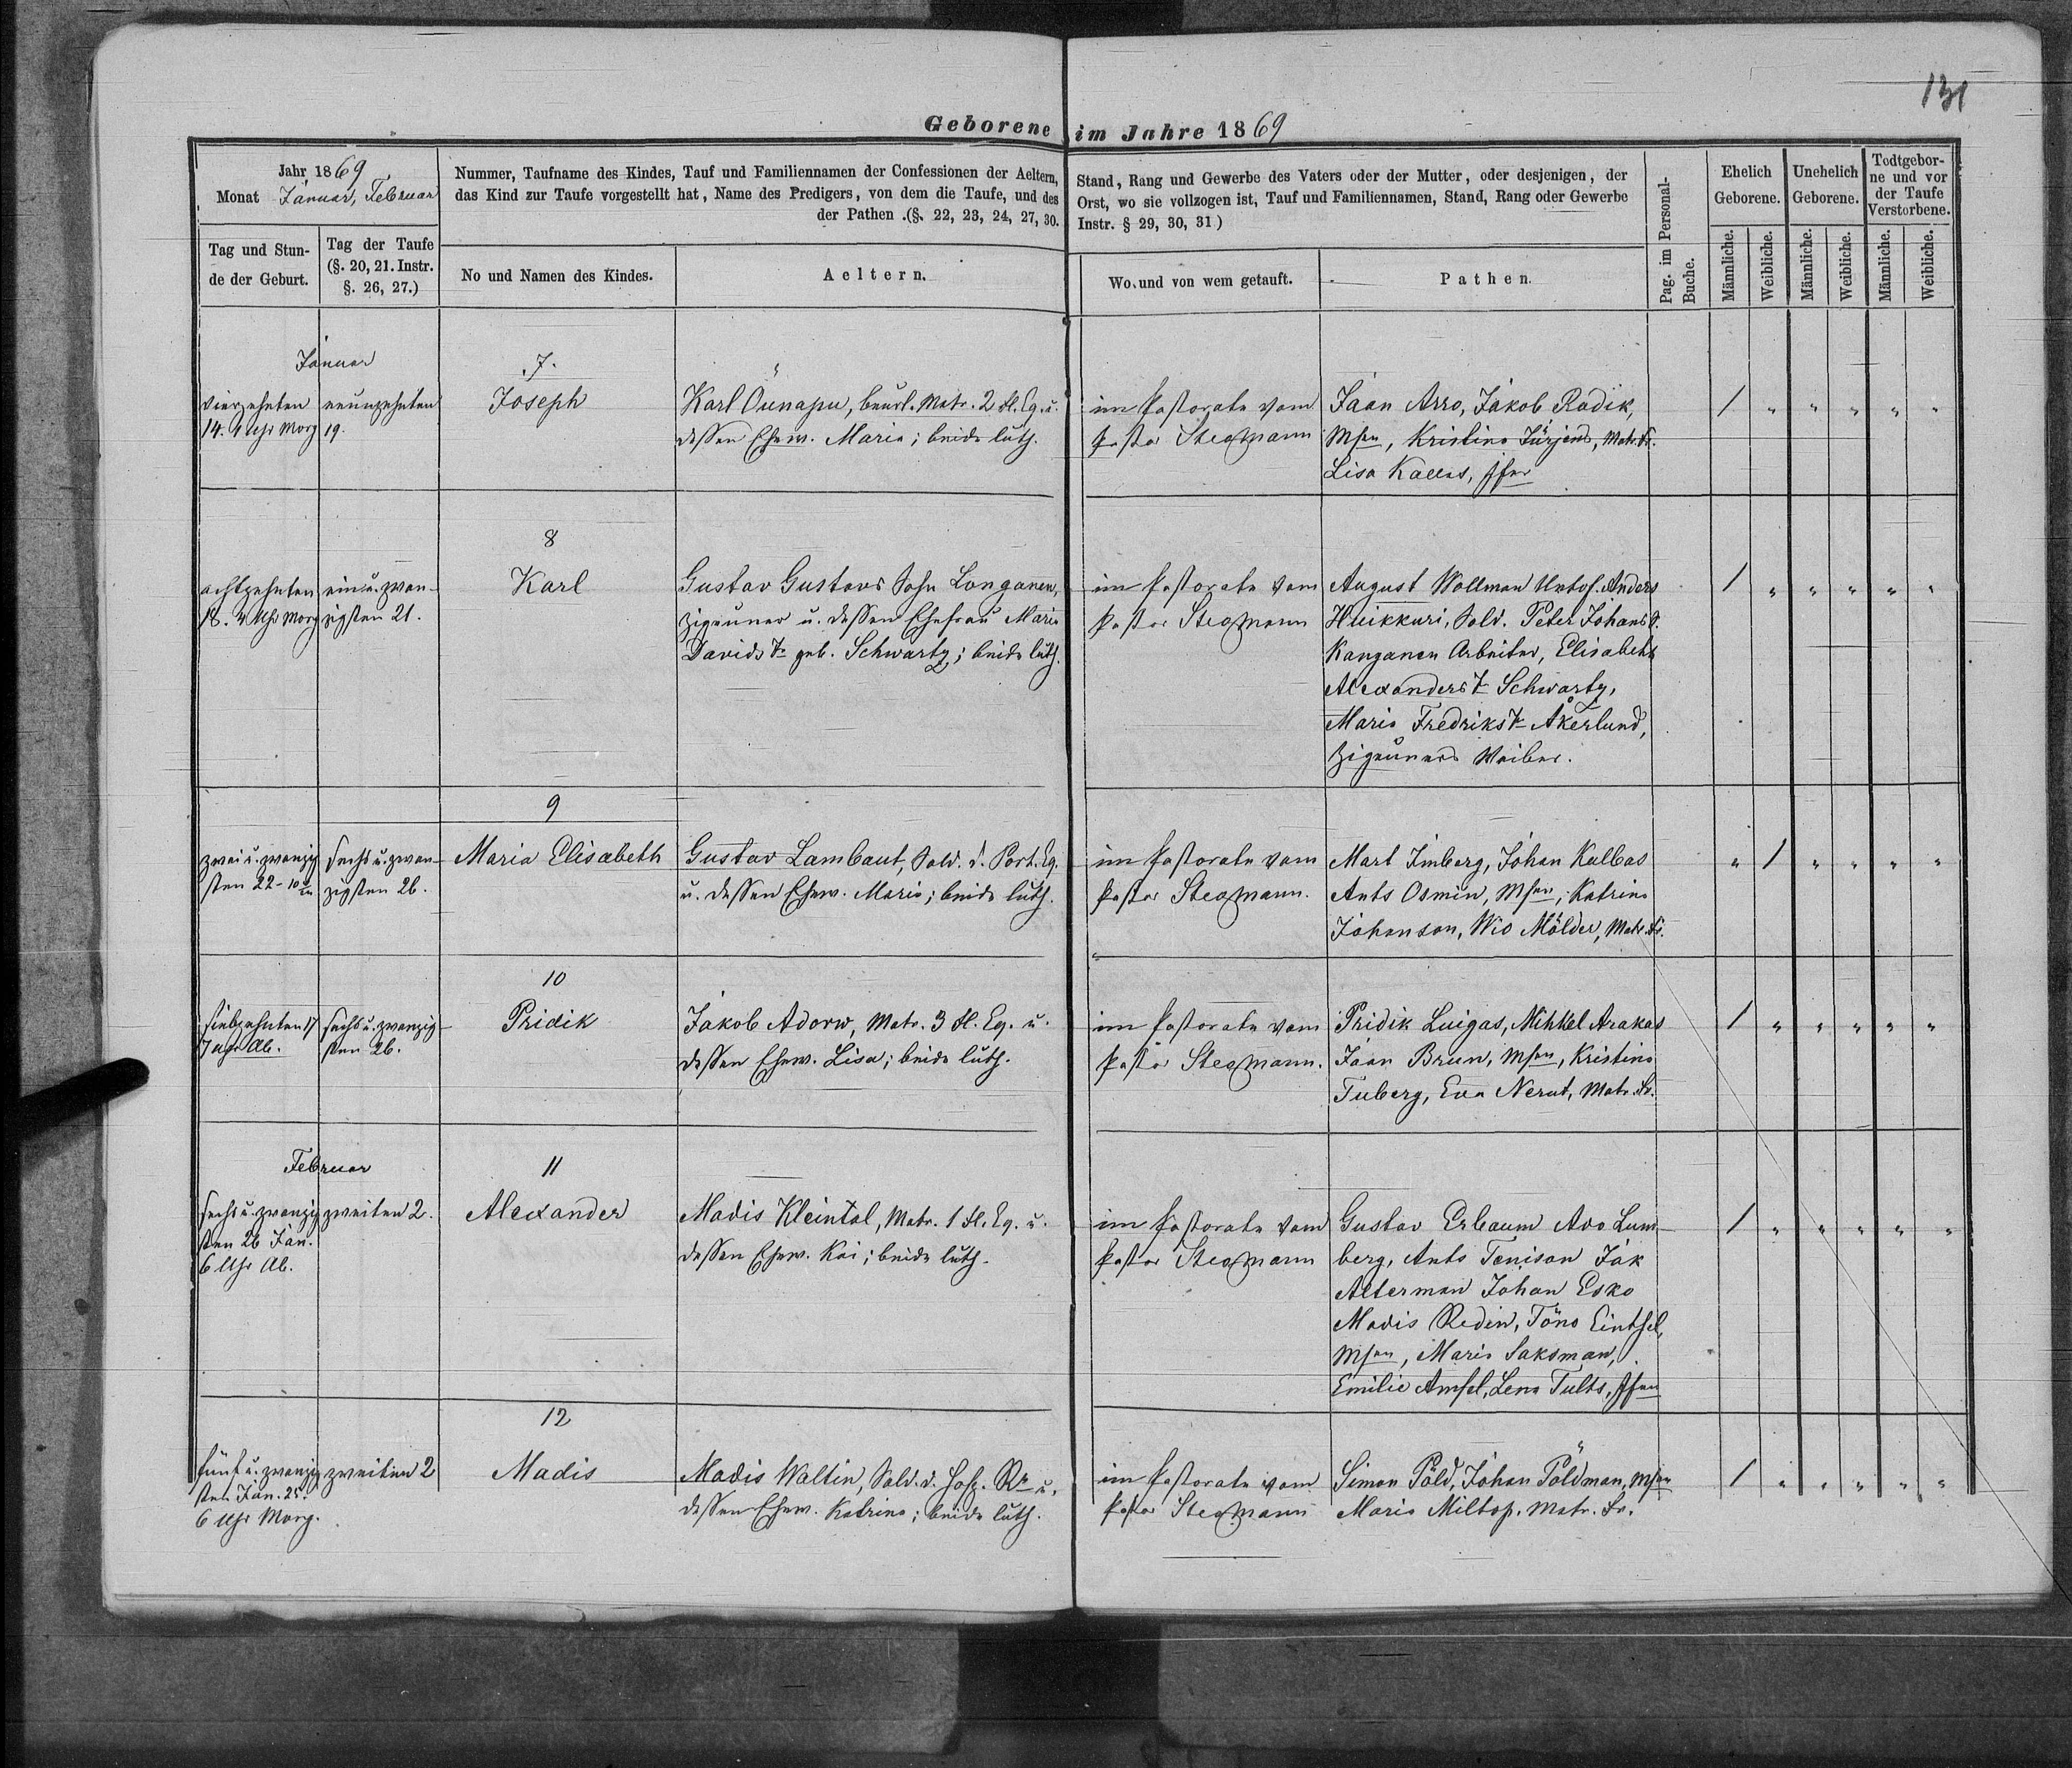 131
Geborene im Jahre 1869
Jahr 1869
Monat Januar, Februar
Nummer, Taufname des Kindes, Tauf und Familiennamen der Confessionen der Aeltern,
das Kind zur Taufe vorgestellt hat, Name des Predigers, von dem die Taufe, und des
der Pathen .(§. 22, 23, 24, 27, 30.
Stand, Rang und Gewerbe des Vaters oder der Mutter, oder desjenigen, der
Orst, wo sie vollzogen ist, Tauf und Familiennamen, Stand, Rang oder Gewerbe
Instr. § 29, 30, 31)
Pag. im Personal-
Buche.
Ehelich
Geborene.
Unehelich
Geborene.
Todtgebor-
ne und vor
der Taufe
Verstorbene.
Tag und Stun-
de der Geburt.
Tag der Taufe
(§. 20, 21. Instr.
§. 26, 27.)
No und Namen des Kindes.
Aeltern.
Wo und von wem getauft.
Pathen.
Männliche.
Weibliche.
Männliche.
Weibliche.
Männliche.
Weibliche.
Januar
vierzehnten
14. 1 Uhr Morg
neunzehnten
19.
7.
Joseph
Karl Õunapu, beurl. Matr. 2 Fl. Eq. u.
dessen Ehew. Maria; beide luth.
im Pastorate vom
Pastor Stegmann
Jaan Arro, Jakob Radik,
Msen, Kristina Jürjens, Matr. Fr.
Lisa Kallas, Jfer
1 " " " " "
achtzehnten
18. 4 Uhr Morg
ein u. zwan-
zigsten 21.
8
Karl
Gustav Gustavs Sohn Longanen,
Zigeuner u. dessen Ehefrau Maria
Davids T. geb. Schwartz; beide luth.
im Pastorate vom
Pastor Stegmann
August Wollman Untof. Anders
Huikkuri, Sold. Peter Johans S.
Kanganen Arbeiter, Elisabeth
Alexanders T. Schwartz,
Maria Fredriks T. Åkerlund,
Zigeuners Weiber.
1 " " " " "
zwei u. zwanzig
sten 22 - 10 U.
sechs u. zwan-
zigsten 26.
9
Maria Elisabeth
Gustav Lambaut, Sold. d. Port. Eq.
u. dessen Ehew. Maria; beide luth.
im Pastorate vom
Pastor Stegmann.
Mart Imberg, Johan Kalbas
Ants Osmin, Msen; Katrina
Johanson, Wio Mölder, Matr. Fr.
" 1 " " " "
siebzehnten 17
7 Uhr Ab.
sechs u. zwanzig
sten 26.
10
Pridik
Jakob Adorw, Matr. 3 Fl. Eq. u.
dessen Ehew. Lisa; beide luth.
im Pastorate vom
Pastor Stegmann.
Pridik Luigas, Mihkel Arakas
Jaan Brun, Msen, Kristina
Tuberg, Eva Nerut, Matr. Fr.
1 " " " " "
Februar
sechs u. zwanzig
sten 26 Jan.
6 Uhr Ab.
zweiten 2.
11
Alexander
Madis Kleintal, Matr. 1 Fl. Eq. u.
dessen Ehew. Kai; beide luth.
im Pastorate vom
Pastor Stegmann
Gustav Erbaum Ado Lum-
berg, Ants Tenison Jak
Alterman Johan Esko
Madis Redin, Tõno Eintsel,
Msen, Maria Saksman,
Emilie Amsel, Lena Tults, Jfen
1 " " " " "
fünf u. zwanzig
sten Jan. 25.
6 Uhr Morg.
zweiten 2
12
Madis
Madis Waltin, Sold. d. Hosp. Rr u.
dessen Ehew. Katrina; beide luth.
im Pastorate vom
Pastor Stegmann
Simon Põld, Johan Põldman, Msen
Maria Miltop. Matr. Fr.
1 " " " " "